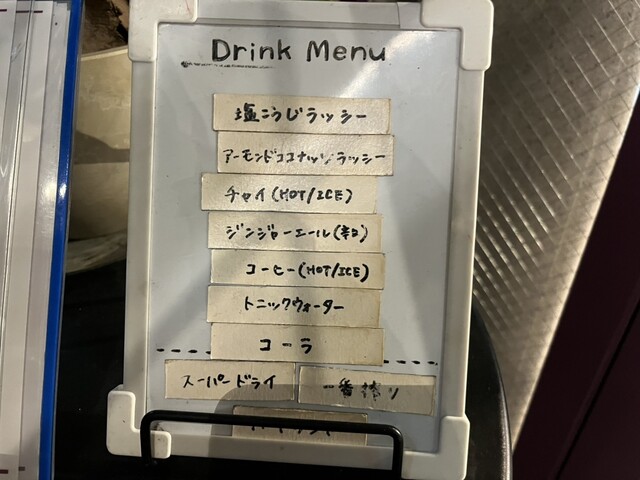 Drink Menu
塩こうじラッシー
アーモンドココナッツラッシー
チャイ(HOT/ICE)
ジンジャーエール(辛口)
コーヒー(HOT/ICE)
トニックウォーター
コーラ
スーパードライ 一番搾り